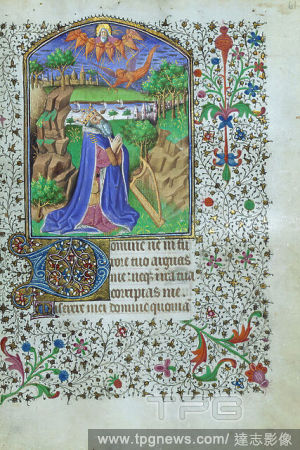 Domine ne in fu
rore tuo arguas
me: neqz in ira tua
corripias me
Miserere mei domine quonia
TPG
www.tpgnews.com/ 達志影像